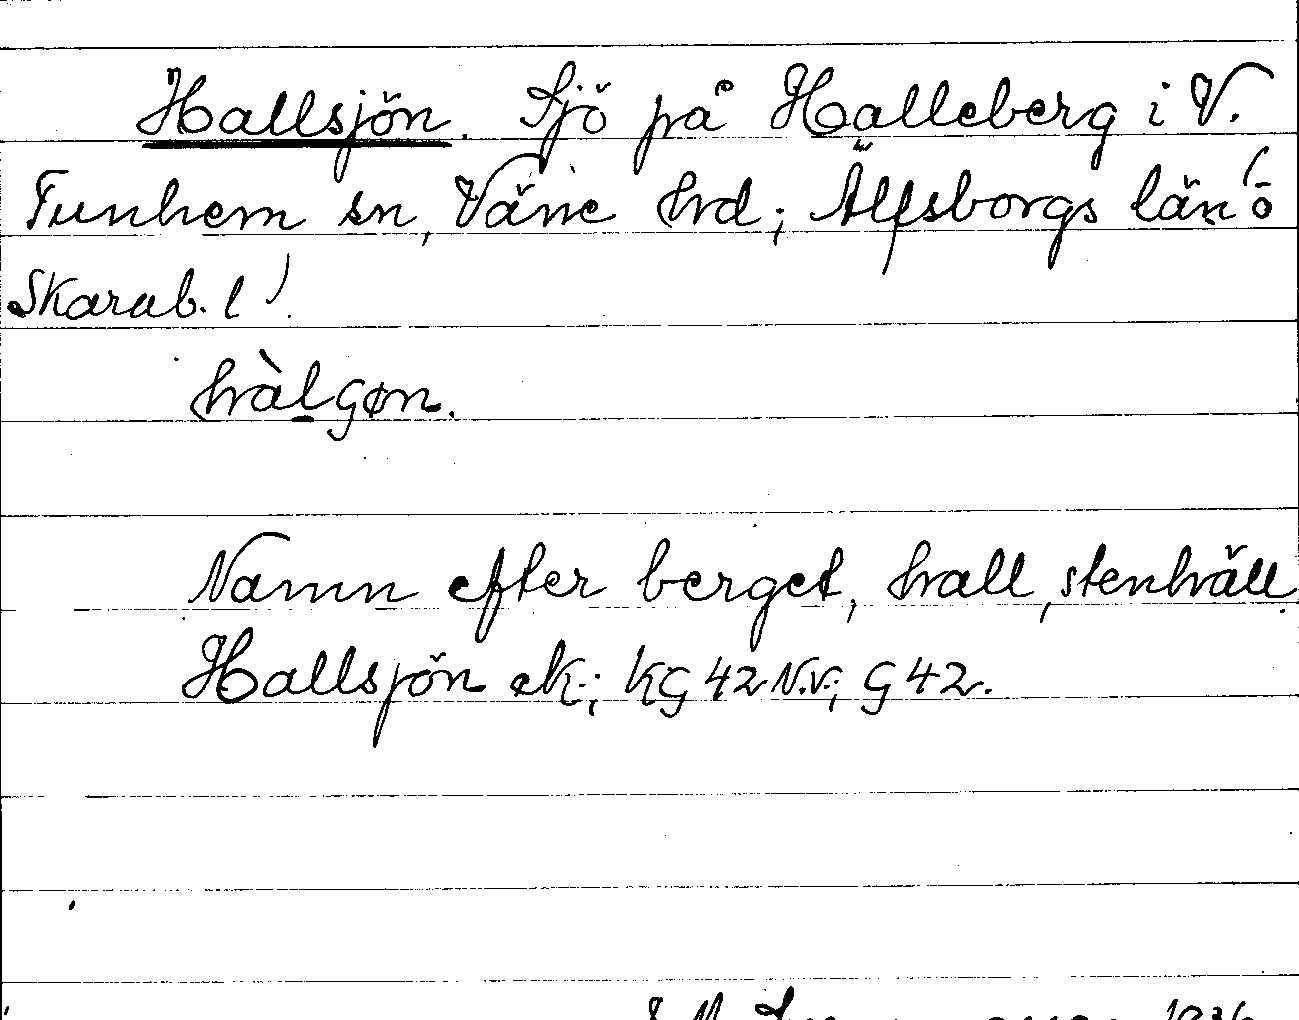 Hallsjön. Sjö på Halleberg i V.
Tunhem sn, Väne hd; Älfsborgs län (o
Skarab. l)
hàlʂøn.
Namn efter berget, hall, stenhäll
Hallsjön ek.; KG 42 N.V.; G 42.
1936